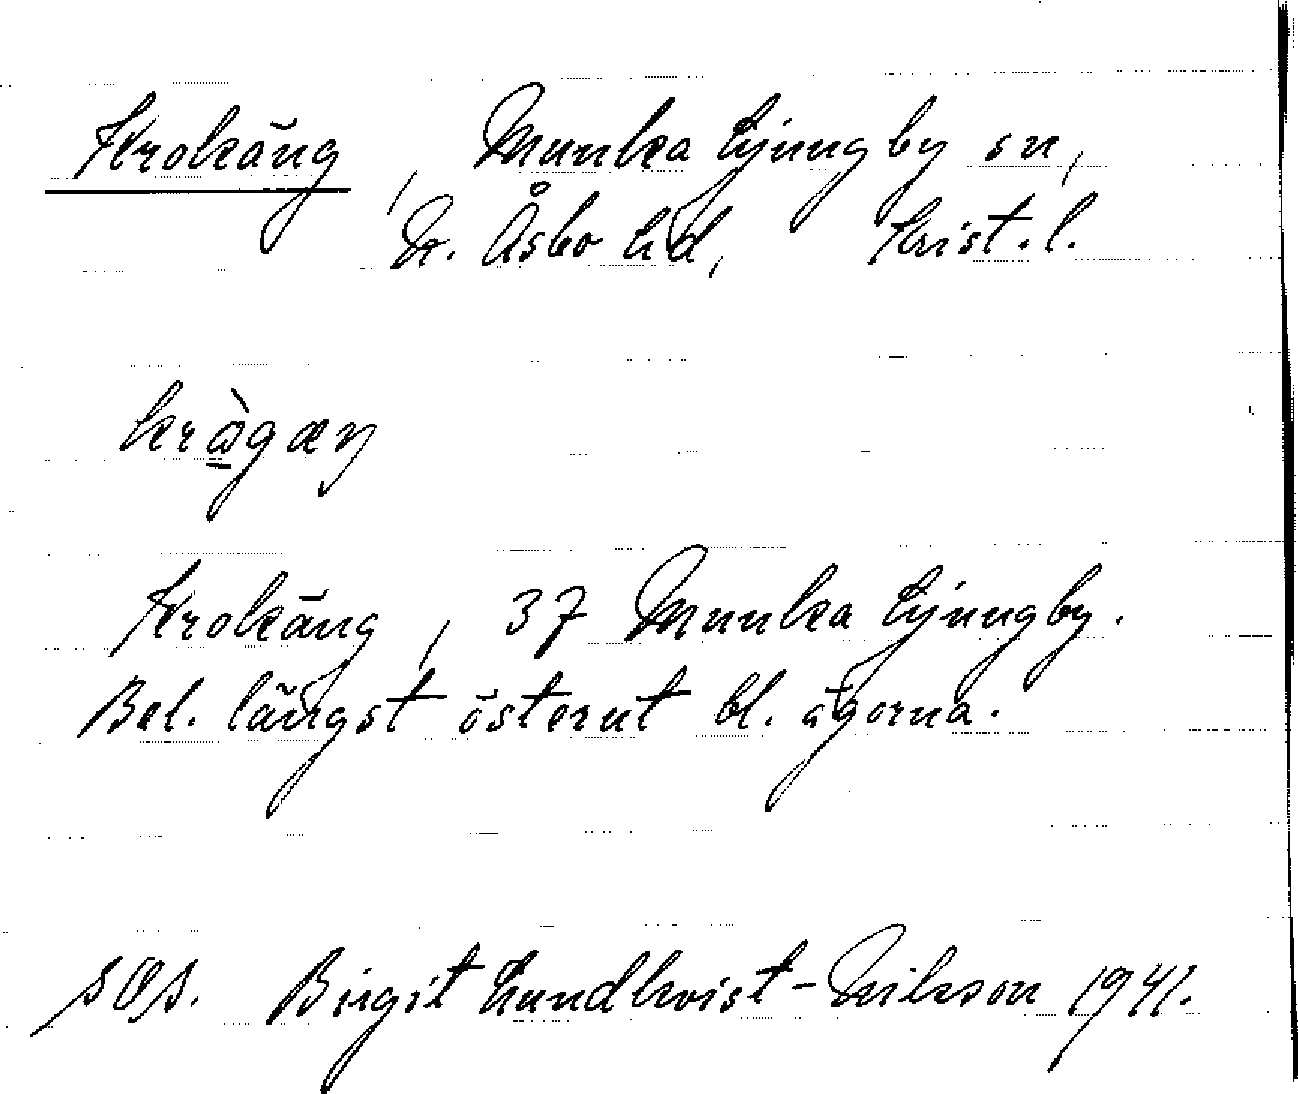 Krokäng, Munka Ljungby sn,
N. Åsbo hd, Krist. l.
Krokäng, 37 Munka Ljungby.
Bel. längst österut bl. ägorna.
SOS. Birgit Lundkvist-Nilsson 1941.